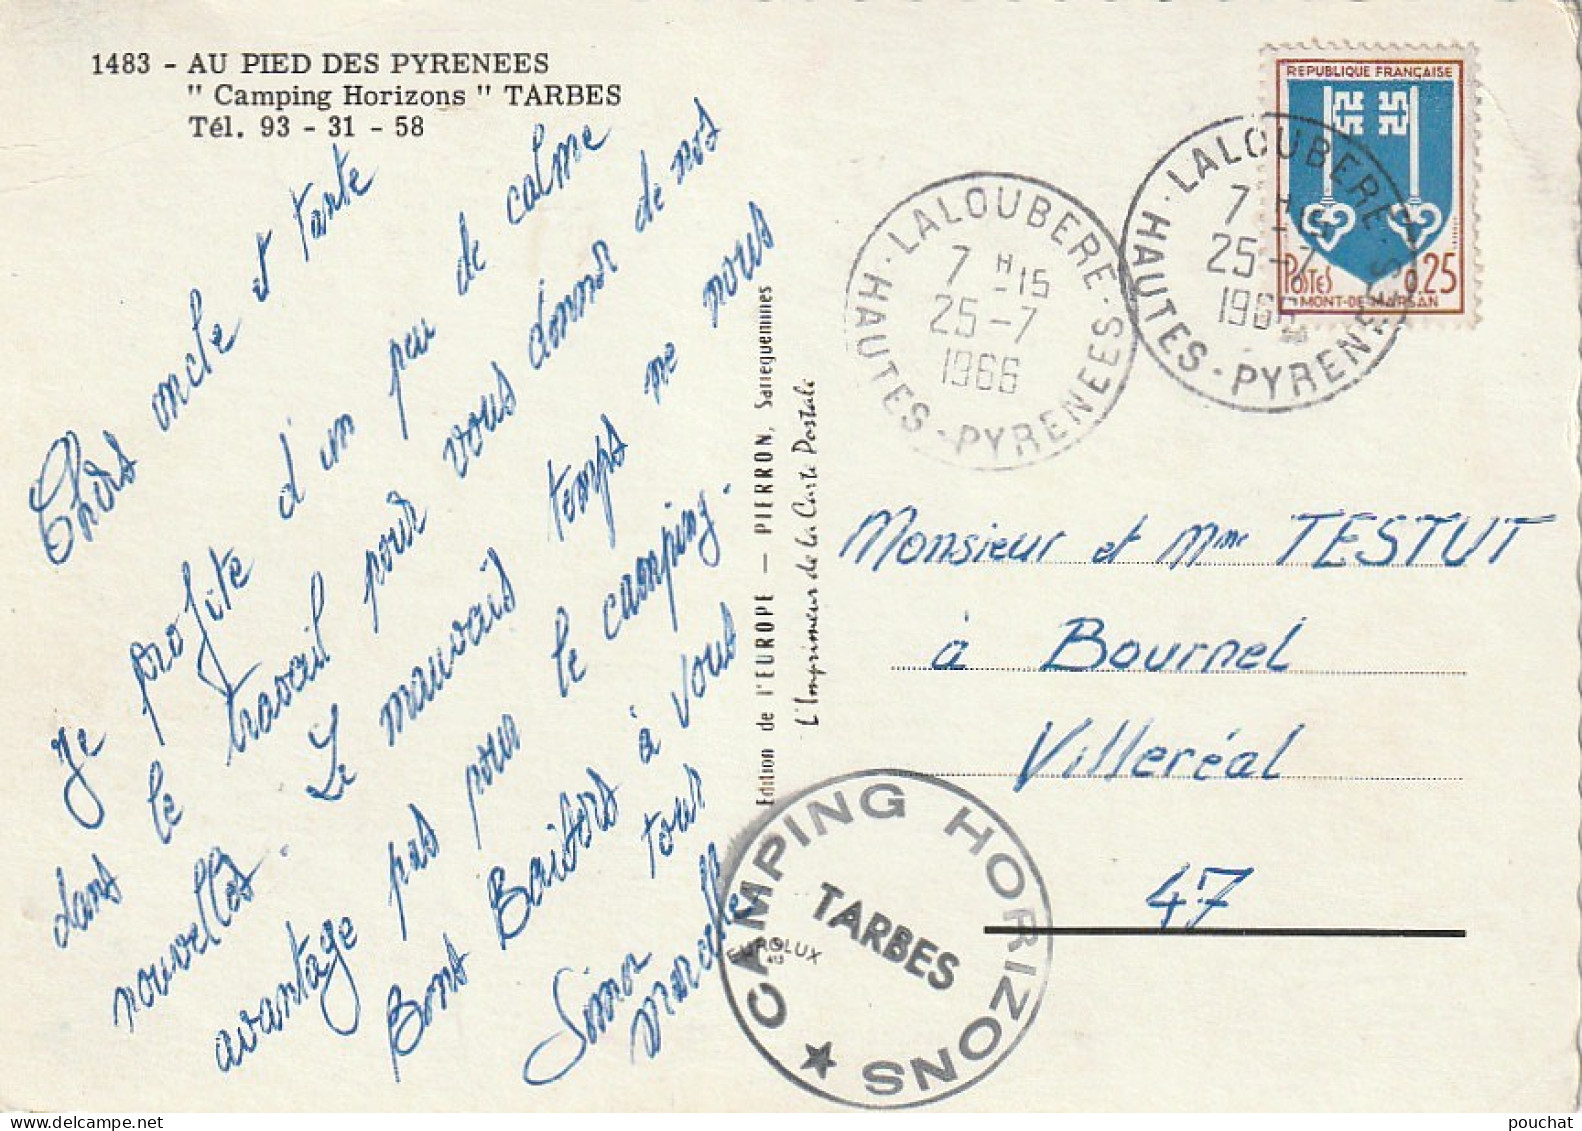 1483 - AU PIED DES PYRENEES
" Camping Horizons " TARBES
Tél. 93 - 31 - 58
Chers oncle et tante
Je profite d'un peu de calme
dans le travail pour vous donner de nos
nouvelles. Le mauvais temps ne nous
avantage pas pour le camping.
Bons Baisers à vous
tous
Simon
Marcelle
Edition de l'EUROPE — PIERRON, Sarreguemines
L'Imprimeur de la Carte Postale
EUROLUX
LALOUBERE
7 H 15
25-7
1966
HAUTES-PYRENEES
LALOUBERE
7 H 15
25-7
1966
HAUTES-PYRENEES
REPUBLIQUE FRANÇAISE
POSTES 0.25
MONT-DE-MARSAN
Monsieur et Mme TESTUT
à Bournel
Villeréal
47
CAMPING HORIZONS
TARBES
pouchat